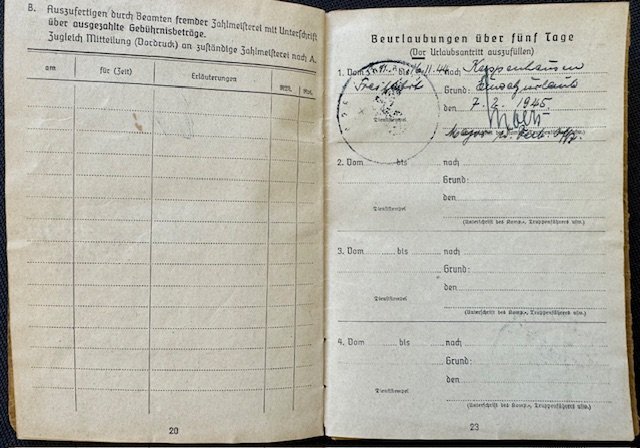 B. Auszufertigen durch Beamten fremder Zahlmeisterei mit Unterschrift
über ausgezahlte Gebührnisbeträge.
Zugleich Mitteilung (Vordruck) an zuständige Zahlmeisterei nach A.
am für (Zeit) Erläuterungen RM. Rpf.
20
Beurlaubungen über fünf Tage
(Vor Urlaubsantritt auszufüllen)
1. Vom bis 11.44 nach
Grund:
den 7.2. 1945.
Dienststempel
Major
2. Vom bis nach
Grund:
den
Dienststempel
(Unterschrift des Komp.-, Truppenführers usw.)
3. Vom bis nach
Grund:
den
Dienststempel
(Unterschrift des Komp.-, Truppenführers usw.)
4. Vom bis nach
Grund:
den
Dienststempel
(Unterschrift des Komp.-, Truppenführers usw.)
23